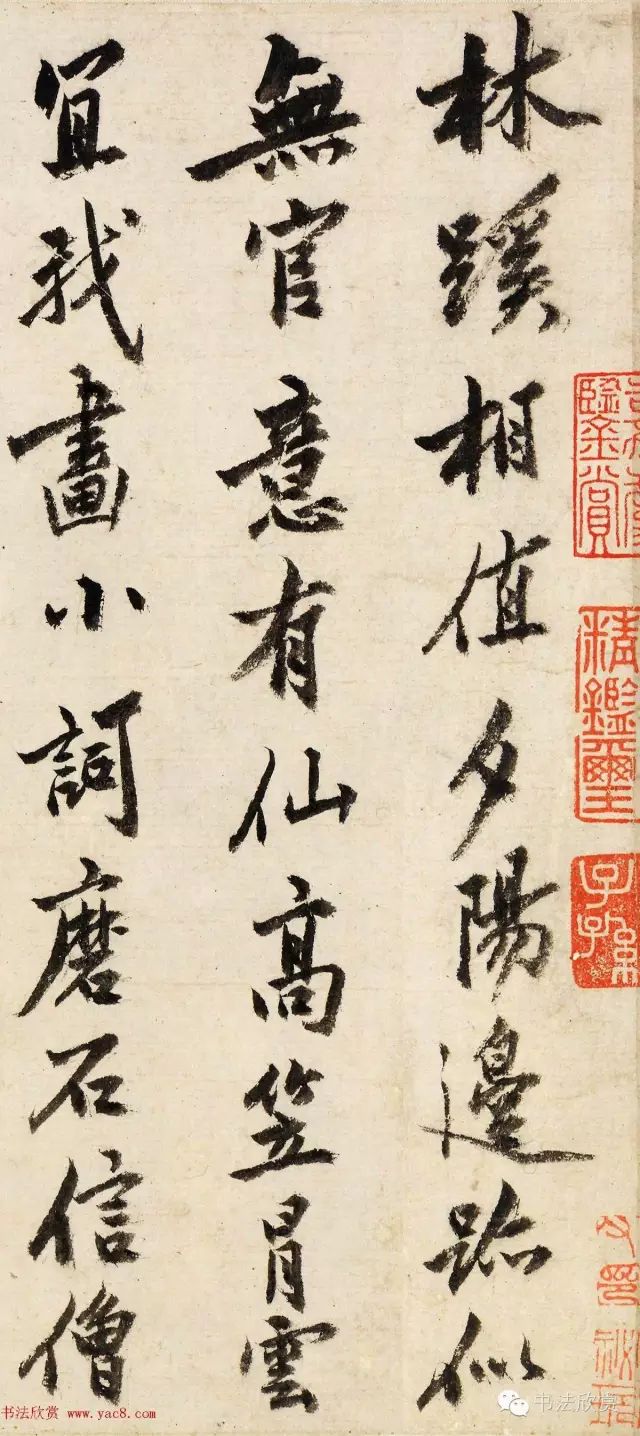 林蹊相值夕陽邊跡似
無官意有仙高笠冐雲
宜我畫小詞磨石信僧
鑒賞
精鑑璽
子孫
书法欣赏 www.yac8.com
书法欣赏